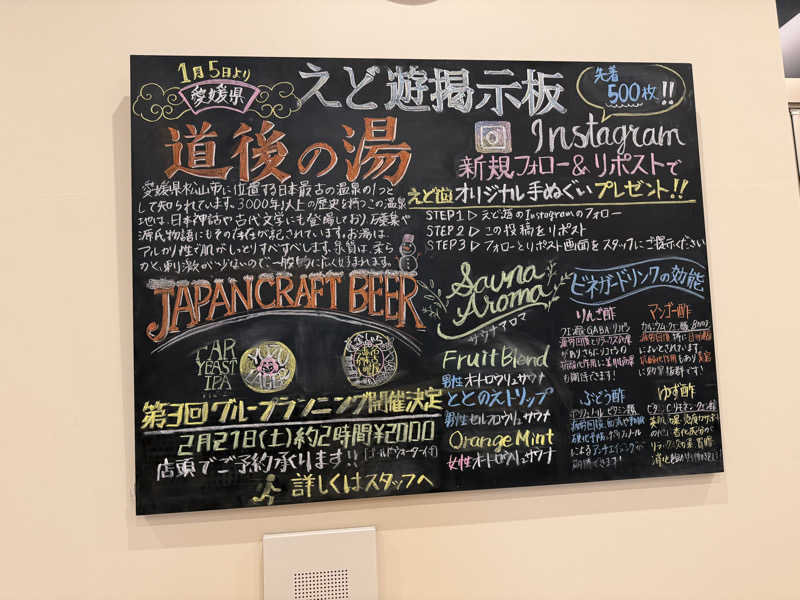 1月5日より
愛媛県
えど遊掲示板
先着
500枚!!
道後の湯
愛媛県松山市に位置する日本最古の温泉の1つと
して知られています。3000年以上の歴史を持つこの温泉
地は、日本神話や古代文学にも登場しており、万葉集や
源氏物語にもその存在が記されています。お湯は、
アルカリ性で肌がしっとりすべすべします。泉質は、柔ら
かく、刺激が少ないので、一般的に広く好まれます。
Instagram
新規フォロー&リポストで
えど遊オリジナル手ぬぐいプレゼント!!
STEP1 ▷ えど遊のInstagramのフォロー
STEP2 ▷ この投稿をリポスト
STEP3 ▷ フォローとリポスト画面をスタッフにご提示ください
JAPAN CRAFT BEER
FAR
YEAST
IPA
第3回グループランニング開催決定
2月21日(土)約2時間¥2000
店頭でご予約承ります!!
詳しくはスタッフへ
Sauna
Aroma
サウナアロマ
Fruit Blend
男性 オートロウリュサウナ
ととのえトリップ
男性 セルフロウリュサウナ
Orange Mint
女性 オートロウリュサウナ
ビネガードリンクの効能
りんご酢
クエン酸 GABA リンゴ
マンゴー酢
ぶどう酢
ポリフェノール ビタミン 酸
ゆず酢